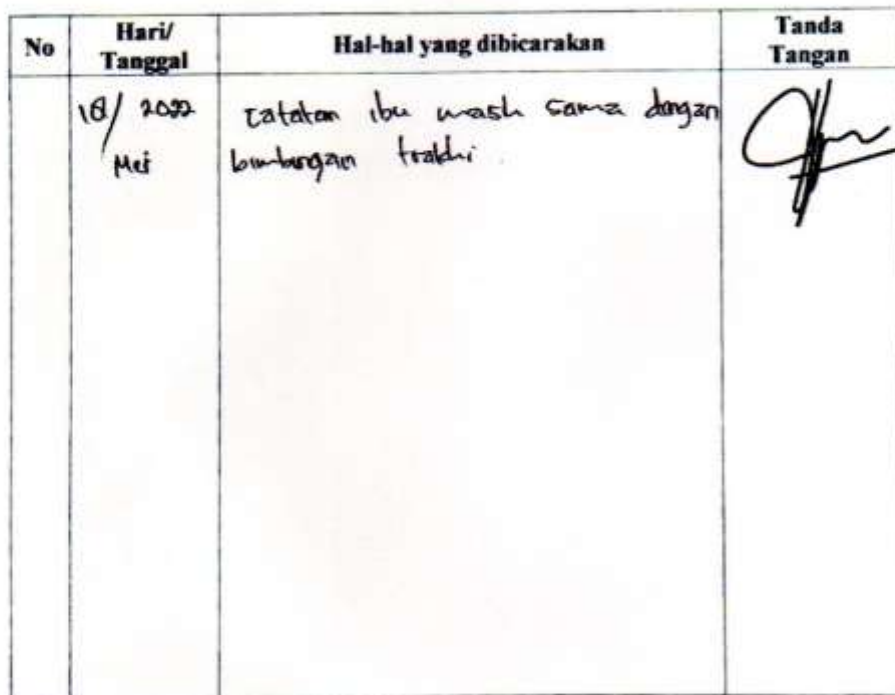 No Hari/ Tanggal Hal-hal yang dibicarakan Tanda Tangan
18/ 2022 Catatan ibu masih sama dengan
Mei bimbingan